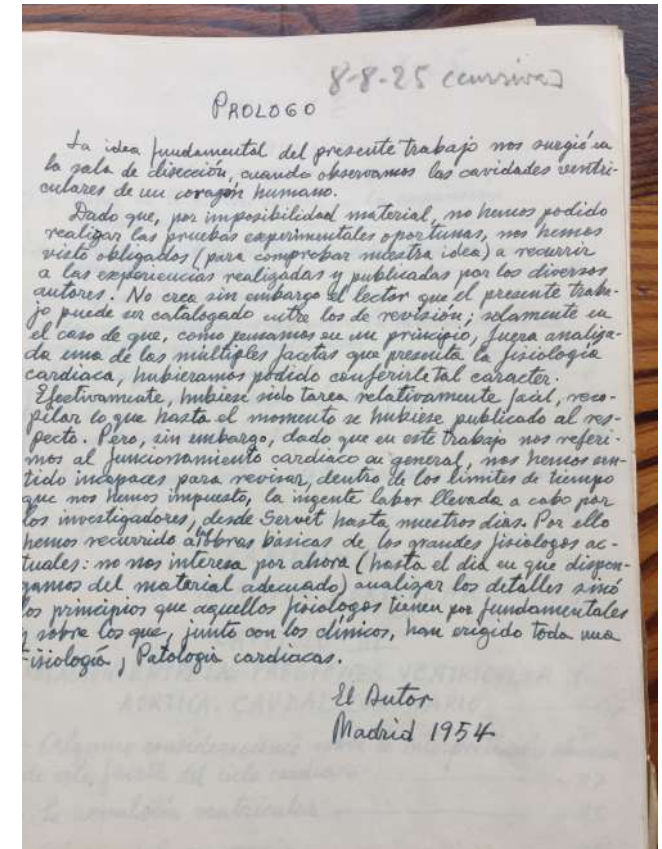 8-8-25 (cursiva)
PROLOGO
La idea fundamental del presente trabajo nos surgió en
la sala de disección, cuando observamos las cavidades ventri-
culares de un corazón humano.
Dado que, por imposibilidad material, no hemos podido
realizar las pruebas experimentales oportunas, nos hemos
visto obligados (para comprobar nuestra idea) a recurrir
a las experiencias realizadas y publicadas por los diversos
autores. No crea sin embargo el lector que el presente traba-
jo puede ser catalogado entre los de revisión; solamente en
el caso de que, como pensamos en un principio, fuera analiza-
da una de las múltiples facetas que presenta la fisiología
cardiaca, hubieramos podido conferirle tal caracter.
Efectivamente, hubiese sido tarea relativamente facil, reco-
pilar lo que hasta el momento se hubiese publicado al res-
pecto. Pero, sin embargo, dado que en este trabajo nos referi-
mos al funcionamiento cardiaco en general, nos hemos sen-
tido incapaces para revisar, dentro de los límites de tiempo
que nos hemos impuesto, la ingente labor llevada a cabo por
los investigadores, desde Servet hasta nuestros dias. Por ello
hemos recurrido a obras básicas de los grandes fisiologos ac-
tuales: no nos interesa por ahora (hasta el dia en que dispon-
gamos del material adecuado) analizar los detalles sinó
los principios que aquellos fisiologos tienen por fundamentales
y sobre los que, junto con los clínicos, han erigido toda una
Fisiología y Patologia cardiacas.
El Autor
Madrid 1954